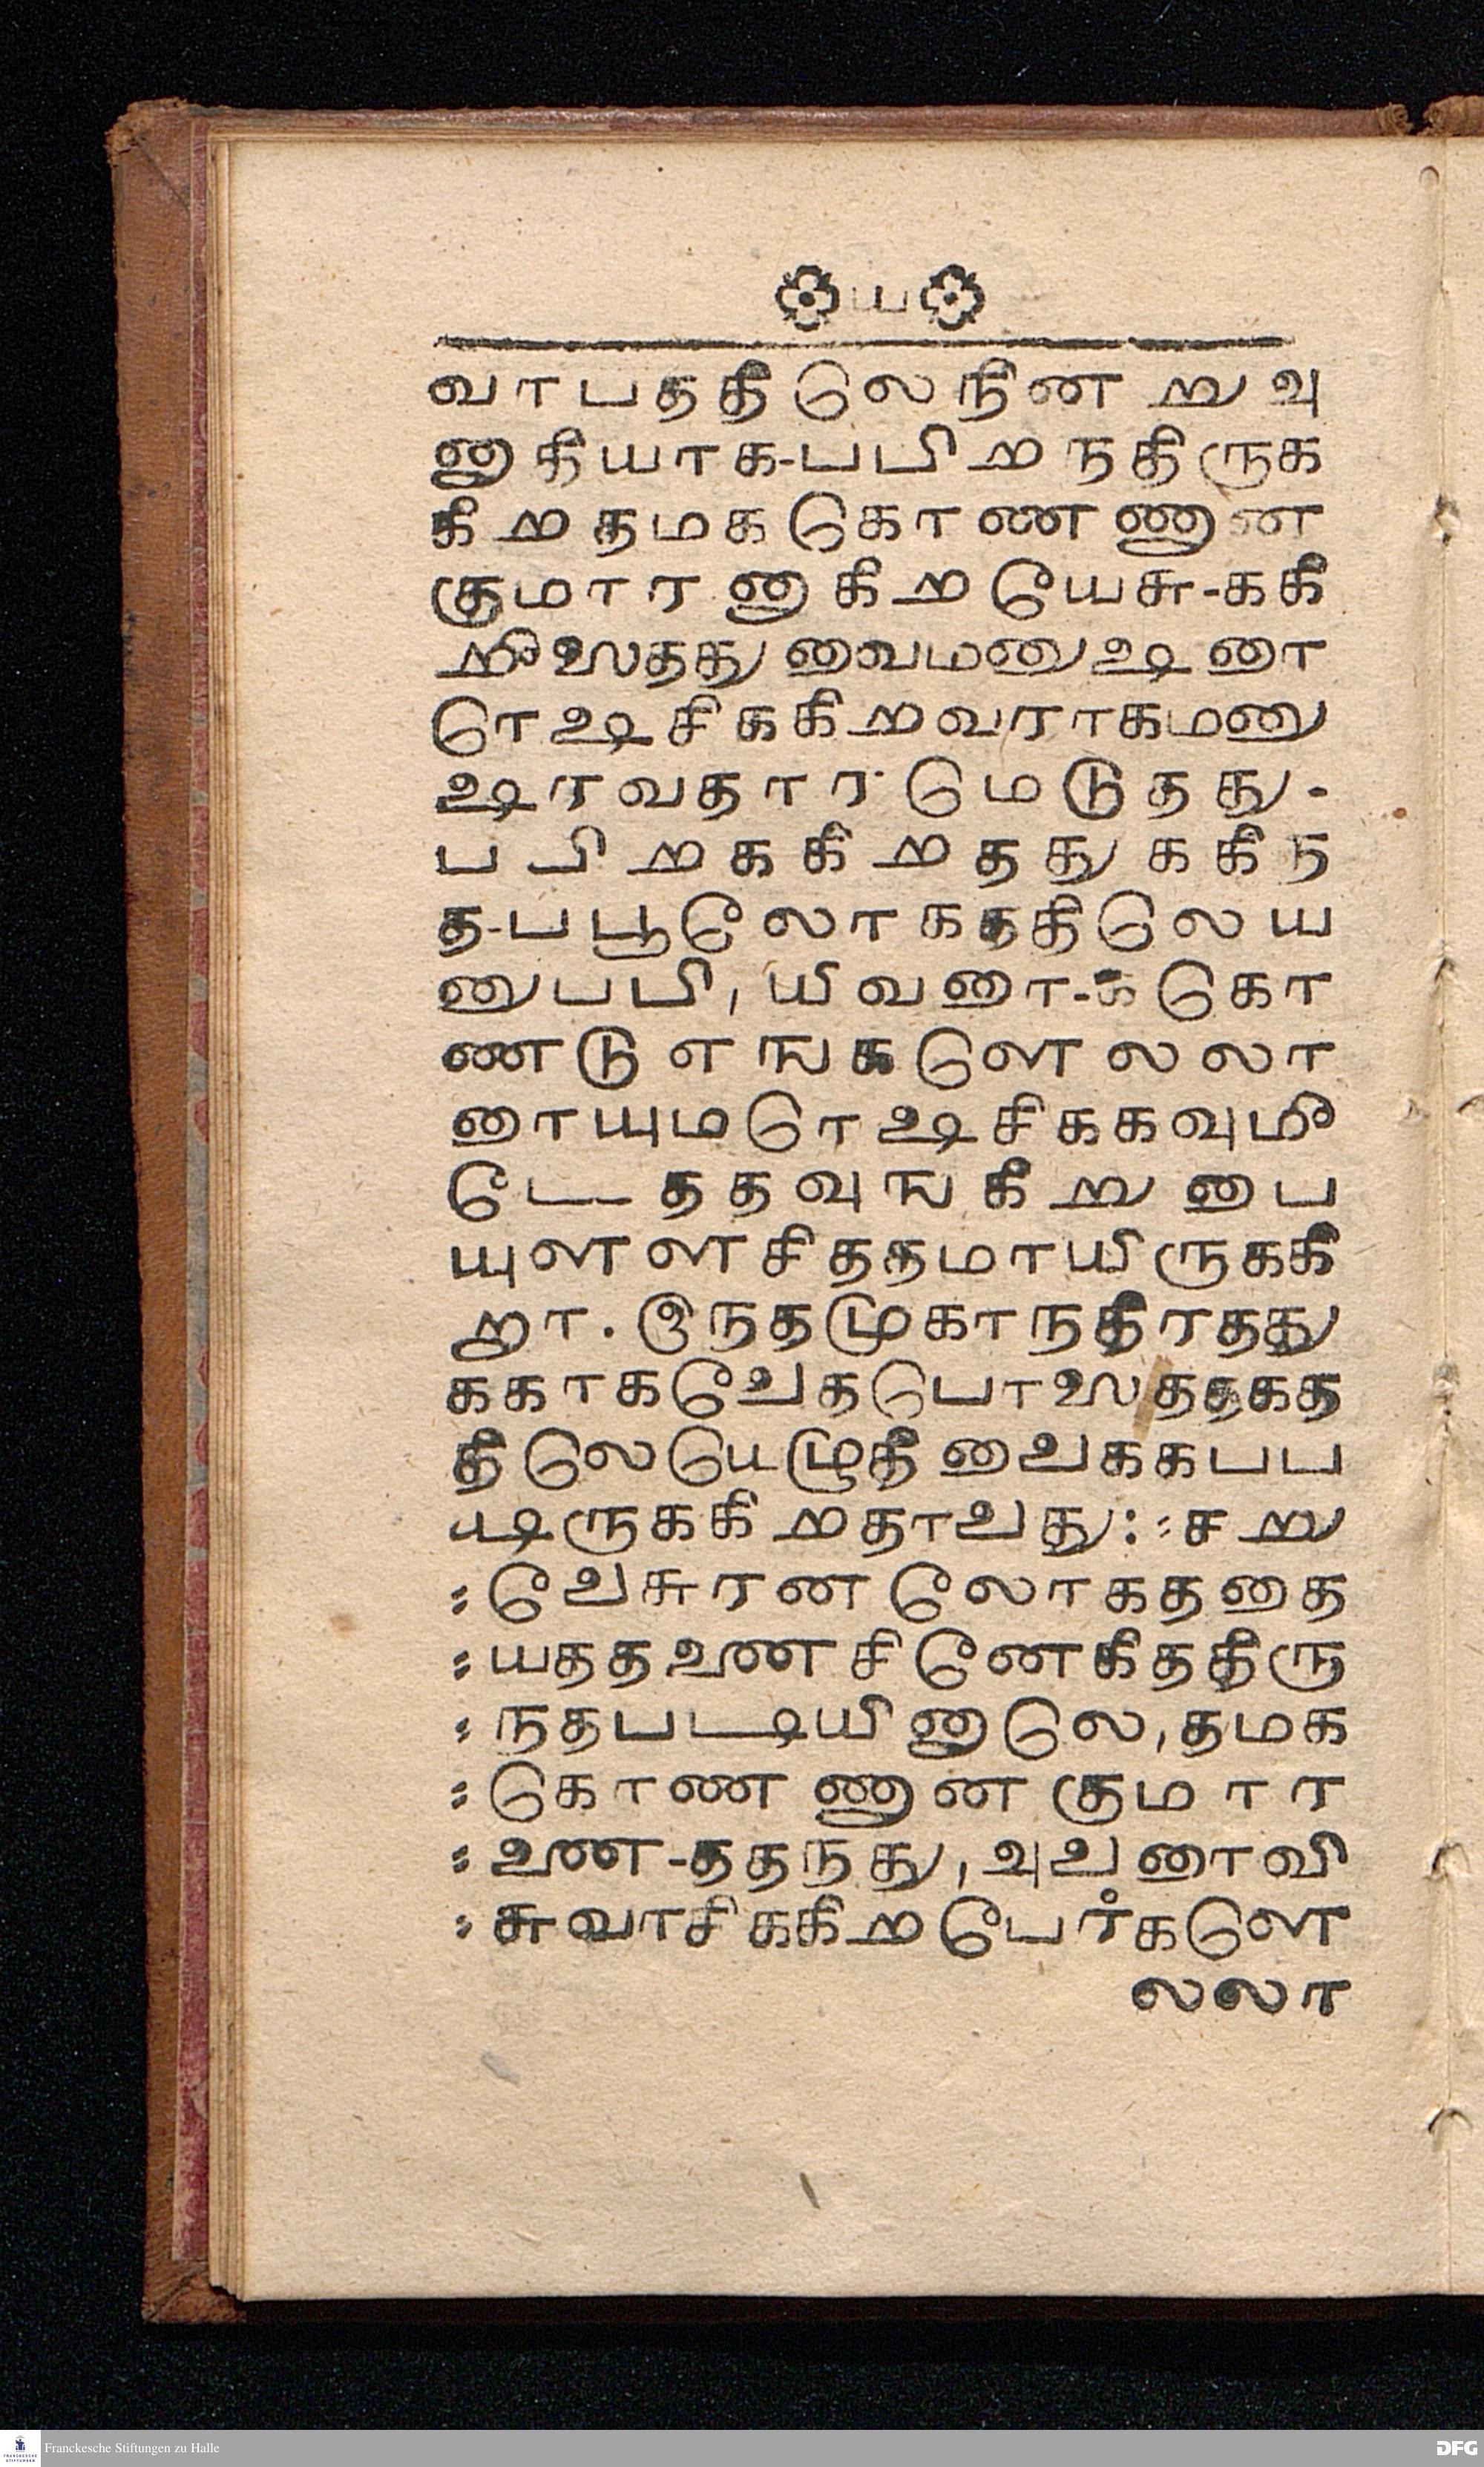 ய
வாபததீலெநினறுவு
னுதியாக-பபிறநதிருக
கிறதமககொணணுன
குமாரனுகிறயேசு-ககீ
றீஷுததுவைமனுஷனா
ரெஷிசிககிறவராகமனு
ஷரவதாரமெடுதது-
பபிறககிறததுககிந
த-பபூலோகததிலெய
னுபபி, யிவனா-ககொ
ணடுஎஙகளெலலா
னாயுமரெஷசிககவுமீ
டேததவுஙகீறுபை
யுளளசிததமாயிருககீ
றா. இநதமுகாநதீரதது
ககாகவேதபொஷததகத
தீலெயெழுதீவைககபப
டிருககிறதாவது: :சறு
:வேசுரனலோகததை
:யததணைசினேகிததீரு
:நதபபடியினுலெ, தமக
:கொணணுனகுமார
:ணை-ததநது, அவனாவி
:சுவாசிககிறபேர்களெ
லலா
Franckesche Stiftungen zu Halle
DFG